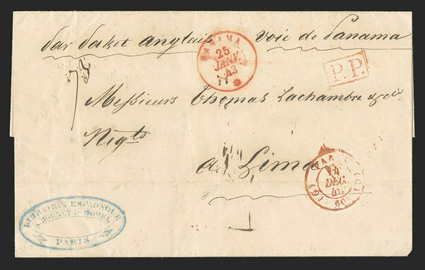 par Paket anglais voie de Panama
PANAMA
25
JANV.
43
P.P.
Messieurs Thomas Lachambre & Co.
Nég.ts
à Lima
14
DEC.
(60)
LIBRAIRIE ESPAGNOLE
PARIS